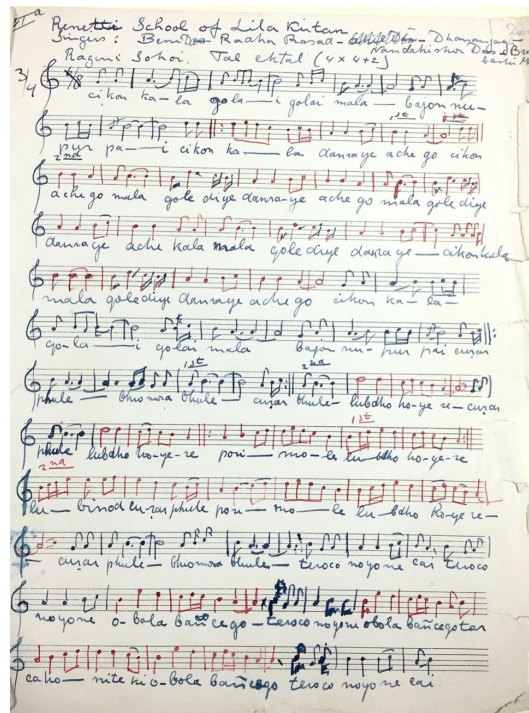 Renetti School of Lila Kirtan
Singers: Beni Radha Prasad - Dhananjan -
Nandakishor Das & Bra
Ragini Sohoi. Tal ektal (4 x 4+2)
3/4
cikon ka-la gola — i golai mala — bajon nu-
1st
pur pa — i cikon ka — la danraye ache go cikon
2nd
ache go mala gole diye danraye ache go mala gole diye
danraye ache kala mala gole diye danraye — cikon kala
mala gole diye danraye ache go cikon ka — la —
go-la — i golai mala bajon nu-pur pai cuṛar
1st 2nd
phule — bhomra bhule — cuṛar bhule — lubdho ho-ye re — cuṛar
1st
phule lubdho ho-ye-re pori — mo-le lu-bdho ho-ye-re
2nd
lu — binod cuṛar phule pori — mo — le lu-bdho ho-ye re —
cuṛar phule — bhomora bhule — teroco noyone cai teroco
noyone o-bola bañcego — teroco noyone obola bañcego tar
caho — nite ki o-bola bañcego teroco noyone cai